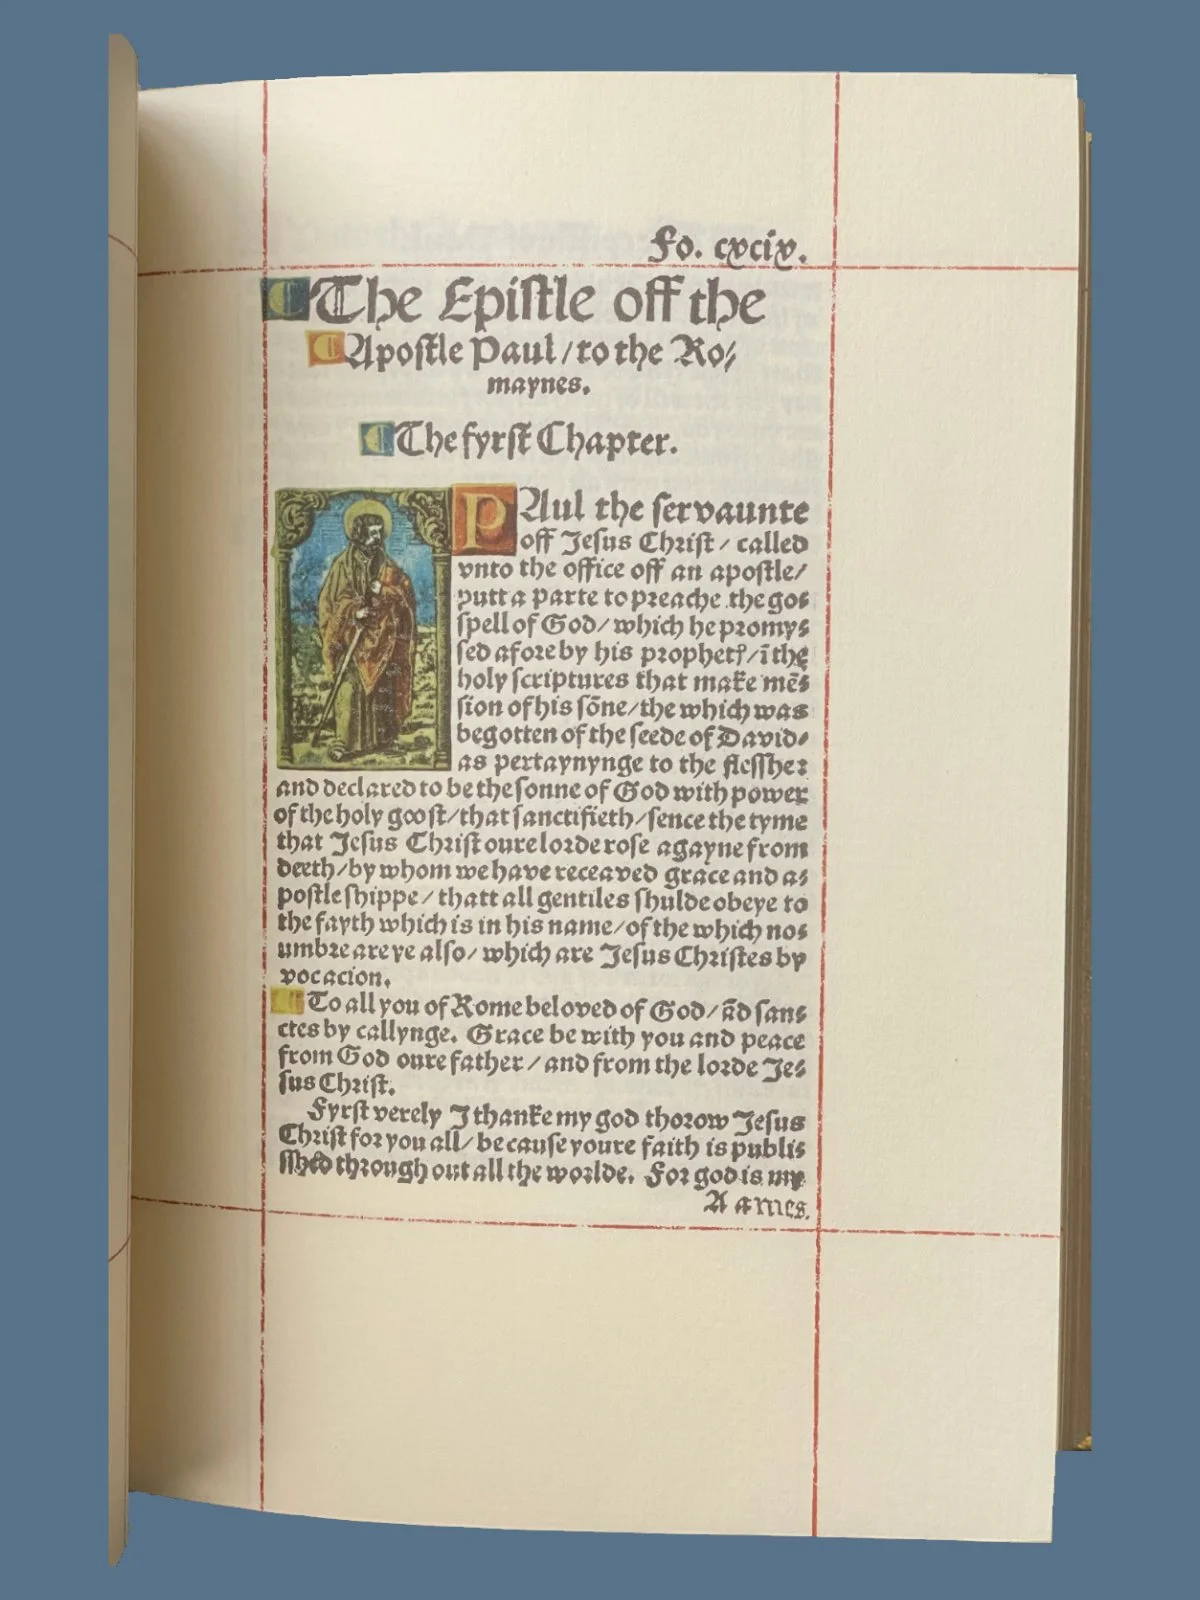 Fo. cxcix.
The Epistle off the
Apostle Paul / to the Ro⸗
maynes.
The fyrst Chapter.
PAul the servaunte
off Jesus Christ / called
vnto the office off an apostle /
putt a parte to preache the gos⸗
spell of God / which he promy⸗
sed afore by his prophetꝭ / ĩ the
holy scriptures that make mẽ⸗
sion of his sõne / the which was
begotten of the seede of David /
as pertaynynge to the flesshe:
and declared to be the sonne of God with power
of the holy goost / that sanctifieth / sence the tyme
that Jesus Christ oure lorde rose agayne from
deeth / by whom we have receaved grace and a⸗
postle shippe / thatt all gentiles shulde obeye to
the fayth which is in his name / of the which no⸗
umbre are ye also / which are Jesus Christes by
vocacion.
To all you of Rome beloved of God / ãd sanc⸗
ctes by callynge. Grace be with you and peace
from God oure father / and from the lorde Je⸗
sus Christ.
Fyrst verely I thanke my god thorow Jesus
Christ for you all / because youre faith is publis⸗
sshed through out all the worlde. For god is my
A a